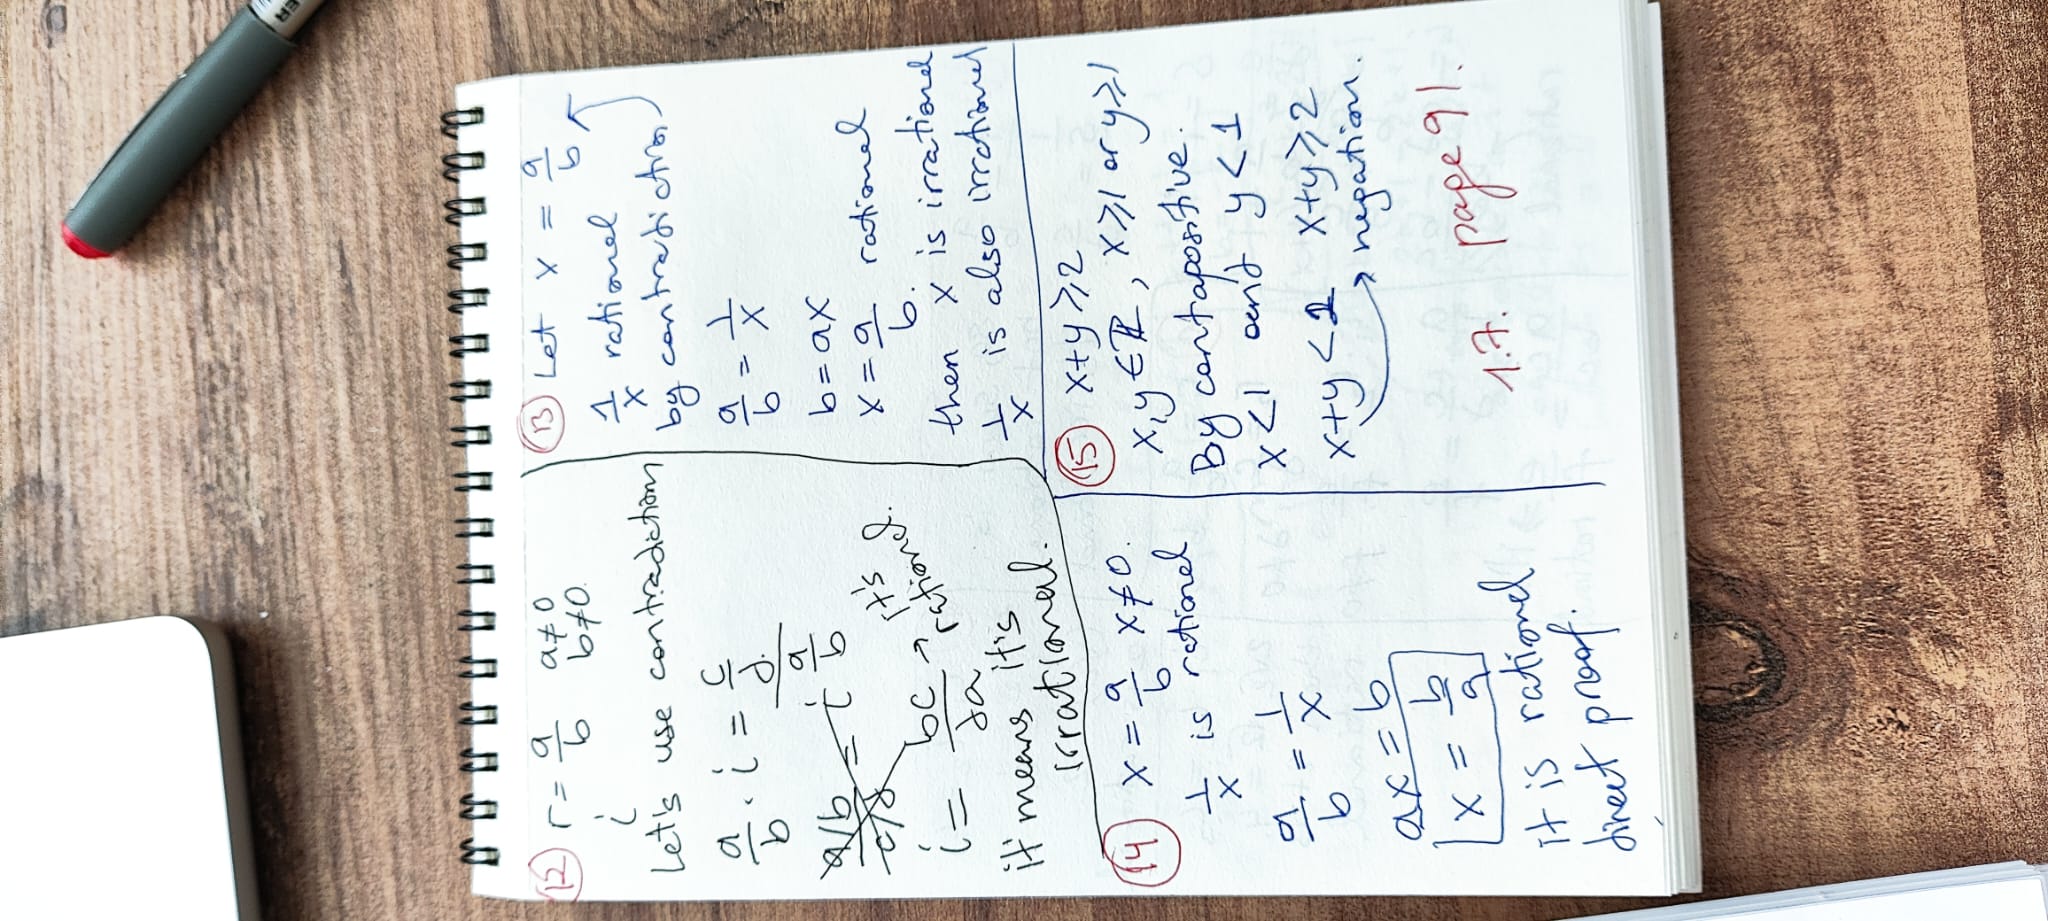 12 r = a/b a≠0
i b≠0.
Let's use contradiction
a/b · i = c/d.
a/b / c/d = i a/b
i = bc/da → it's rational.
it means it's
irrational.
13 Let x = a/b
1/x rational
by contradiction
a/b = 1/x
b = ax
x = a/b. rational
then x is irrational
1/x is also irrational
14 x = a/b x≠0.
1/x is rational
a/b = 1/x
ax = b
x = b/a
it is rational
direct proof.
15 x+y ⩾ 2
x,y ∈ ℝ, x⩾1 or y⩾1
By contapositive.
x<1 and y<1
x+y<2 x+y⩾2
→ negation.
1.7. page 91.